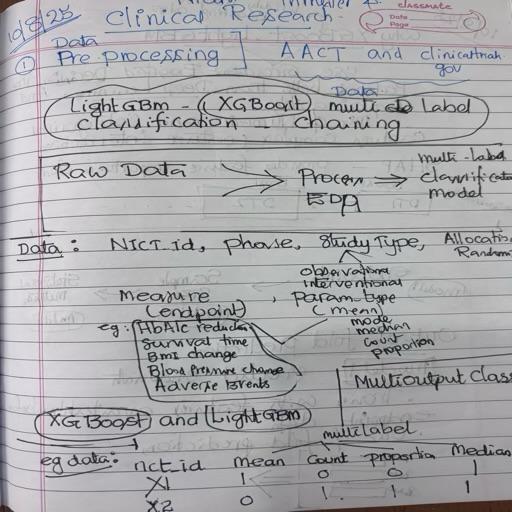 10/8/25
Clinical Research.
classmate
Date
Page
Data
① Pre-processing ] AACT and clinicaltrials.
gov
Data
LightGBm - XGBoost multi Label
classification - chaining
Raw Data → Process → multi-label
EDA
classificat
model
Data: NICT_id, phase, StudyType, Allocatio
Randomi
observational
interventional
measure
(endpoint), Param_type
(mean)
mode
median
count
proportion
eg: HbA1c reduction
Survival time
Bmi change
Blood pressure change
Adverse Events
Multioutput Class
XGBoost and LightGBm
multilabel.
eg data: nct_id mean count proportion Median
X1 1 0 0 1
X2 0 1 1 1